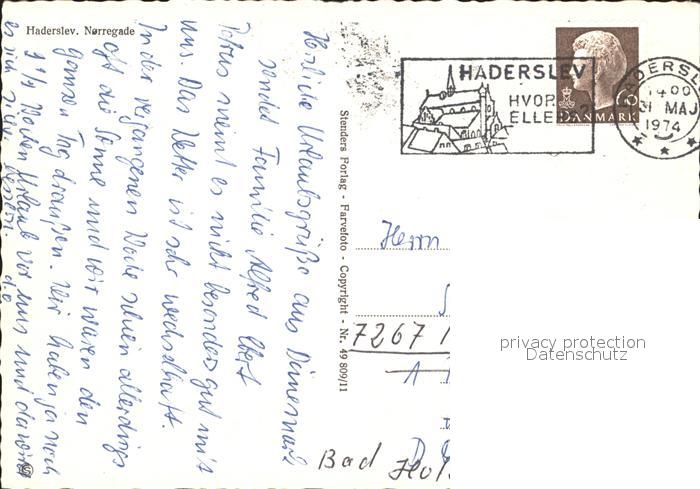 Haderslev. Nørregade
HADERSLEV
HVOR
ELLERS?
HADERSLEV
14 00
31 MAJ
1974
60
DANMARK
Stenders Forlag - Farvefoto - Copyright - Nr. 49 809/11
Herzliche Urlaubsgrüße aus Dänemark
sendet Familie Alfred
Petrus meint es nicht besonders gut mit
uns. Das Wetter ist sehr wechselhaft.
In der vergangenen Woche schien allerdings
oft die Sonne und wir waren den
ganzen Tag draußen. Wir haben ja noch
1 1/2 Wochen Urlaub vor uns und da wird
es sich
Herrn
7267
Bad
privacy protection
Datenschutz